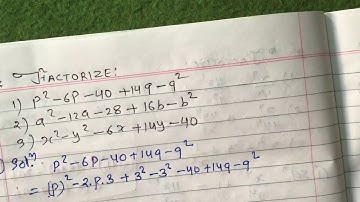 FACTORIZE:
1) p²-6p-40+14q-q²
2) a²-12a-28+16b-b²
3) x²-y²-6x+14y-40
Solⁿ: p²-6p-40+14q-q²
= (p)²-2.p.3+3²-3²-40+14q-q²